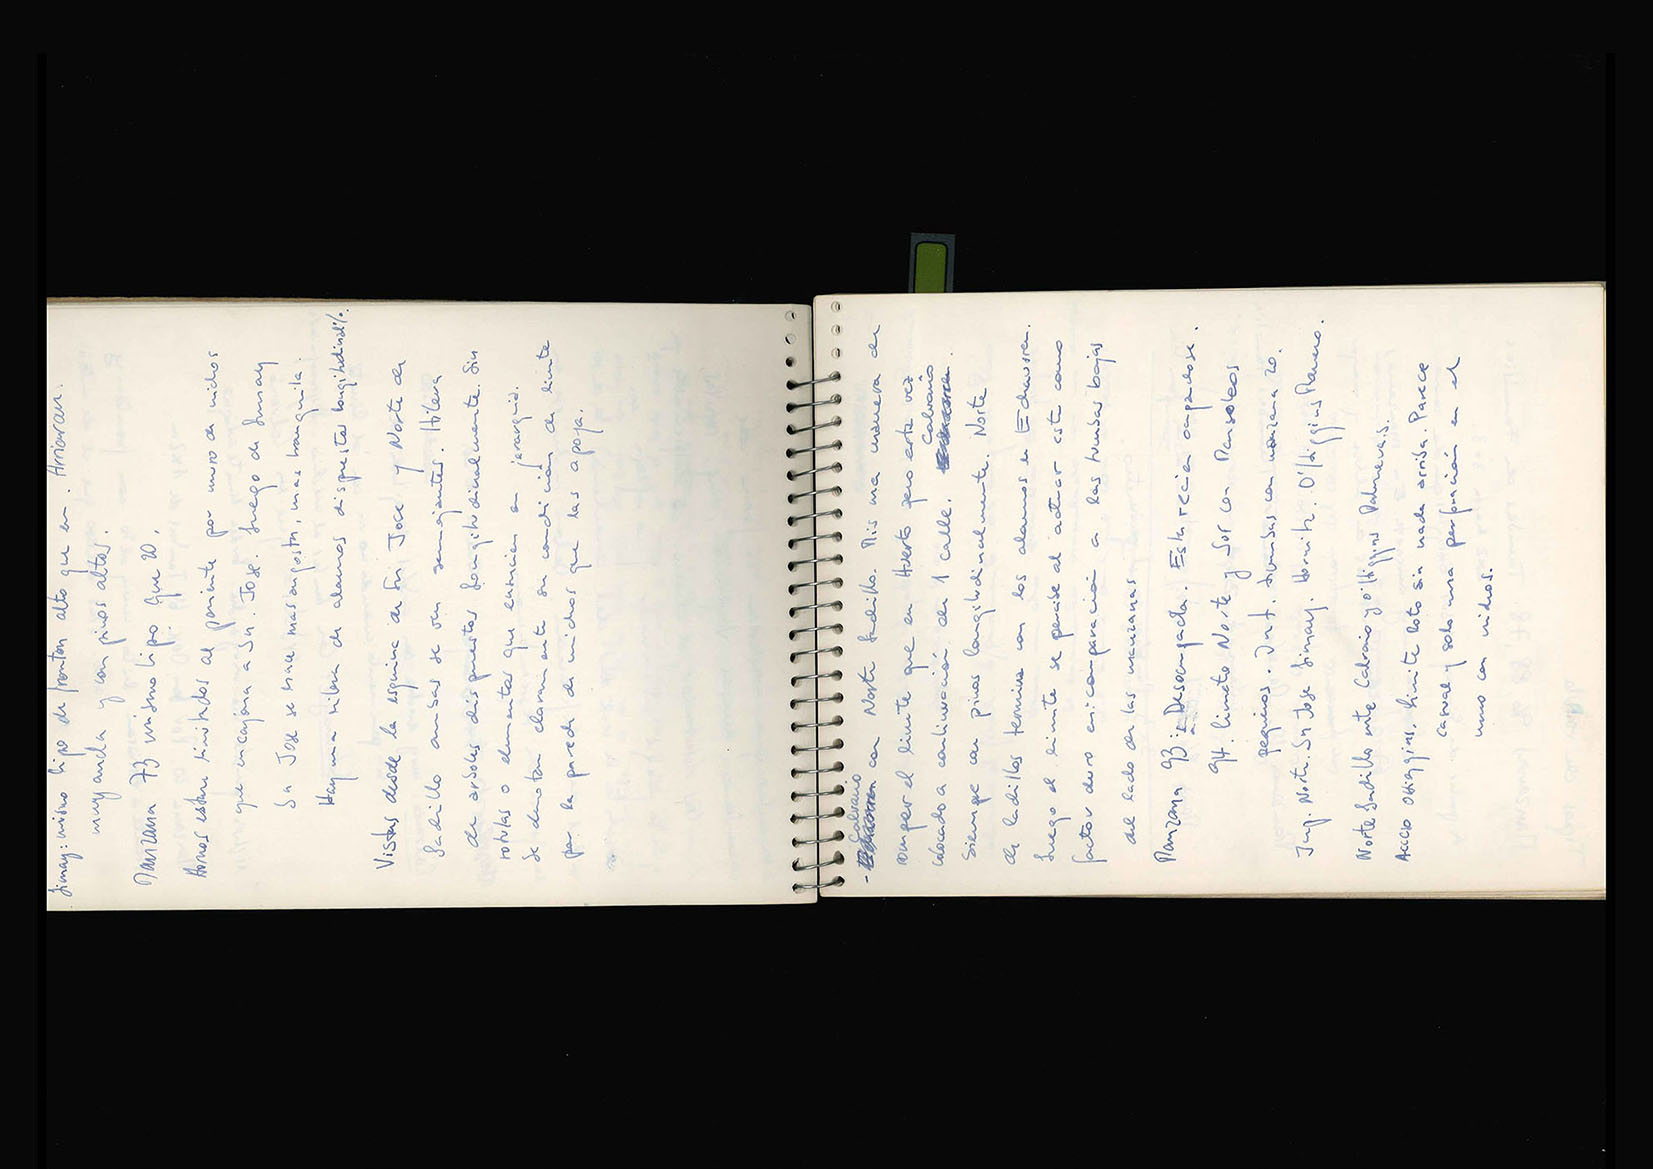 Limay: mismo tipo de frontón alto que en Arriarán.
muy ancha y con pinos altos.
Manzana 73 mismo tipo que 20,
Ambos están limitados al poniente por muro de nichos
que encajona a Sn. José. Luego de Limay
Sn José se hace más angosta, más tranquila.
Hay una hilera de álamos dispuestos longitudinal/.
Vistas desde la esquina de Sn José y Norte de
Ladrillo ambas se ven semejantes. Hilera
de árboles dispuestos longitudinalmente. Sin
rótulas o elementos que enuncien en jerarquía.
Se denotan claramente su condición de límite
por la pared de nichos que las apoya.
- Calvario con Norte Ladrillo. Misma manera de
romper el límite que en Huerto pero esta vez
colocado a continuación de 1 calle. Calvario
Siempre con pinos longitudinalmente. Norte
de ladrillos termina con los álamos de Echauren.
Luego el límite se percibe al actuar este como
factor duro en comparación a las tumbas bajas
del lado de las manzanas
Manzana 93: Desocupada. Está recién ocupándose.
94. limita Norte y Sur con Mausoleos
pequeños. Int. tumbas con manzana 20.
Int. Norte. Sn José Limay. Hornitos. O'Higgins Romero.
Norte Ladrillo entre Calvario y O'Higgins Palmeras.
Acceso O'Higgins. Límite roto sin nada arriba. Parece
casual y solo una perforación en el
muro con nichos.